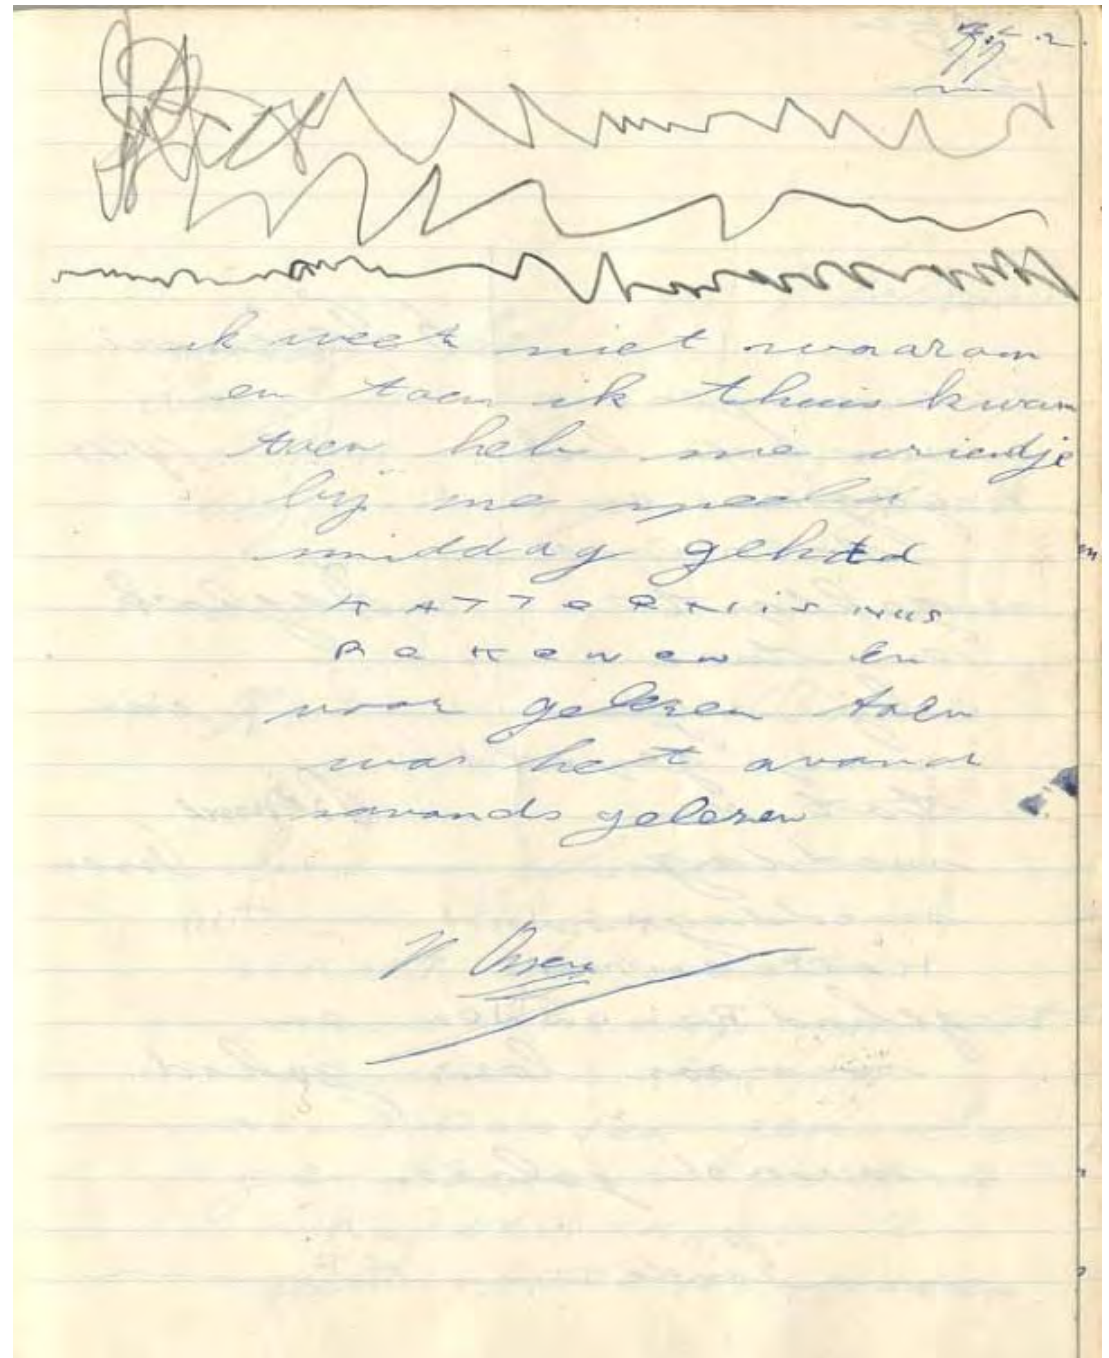 ik weet niet waarom
en toen ik thuis kwam
toen heb me vriendje
bij me speelt
middag gehad
KATTeeRMiSMUS
ReKeNeN en
voor gelezen toen
was het avand
savands gelezen